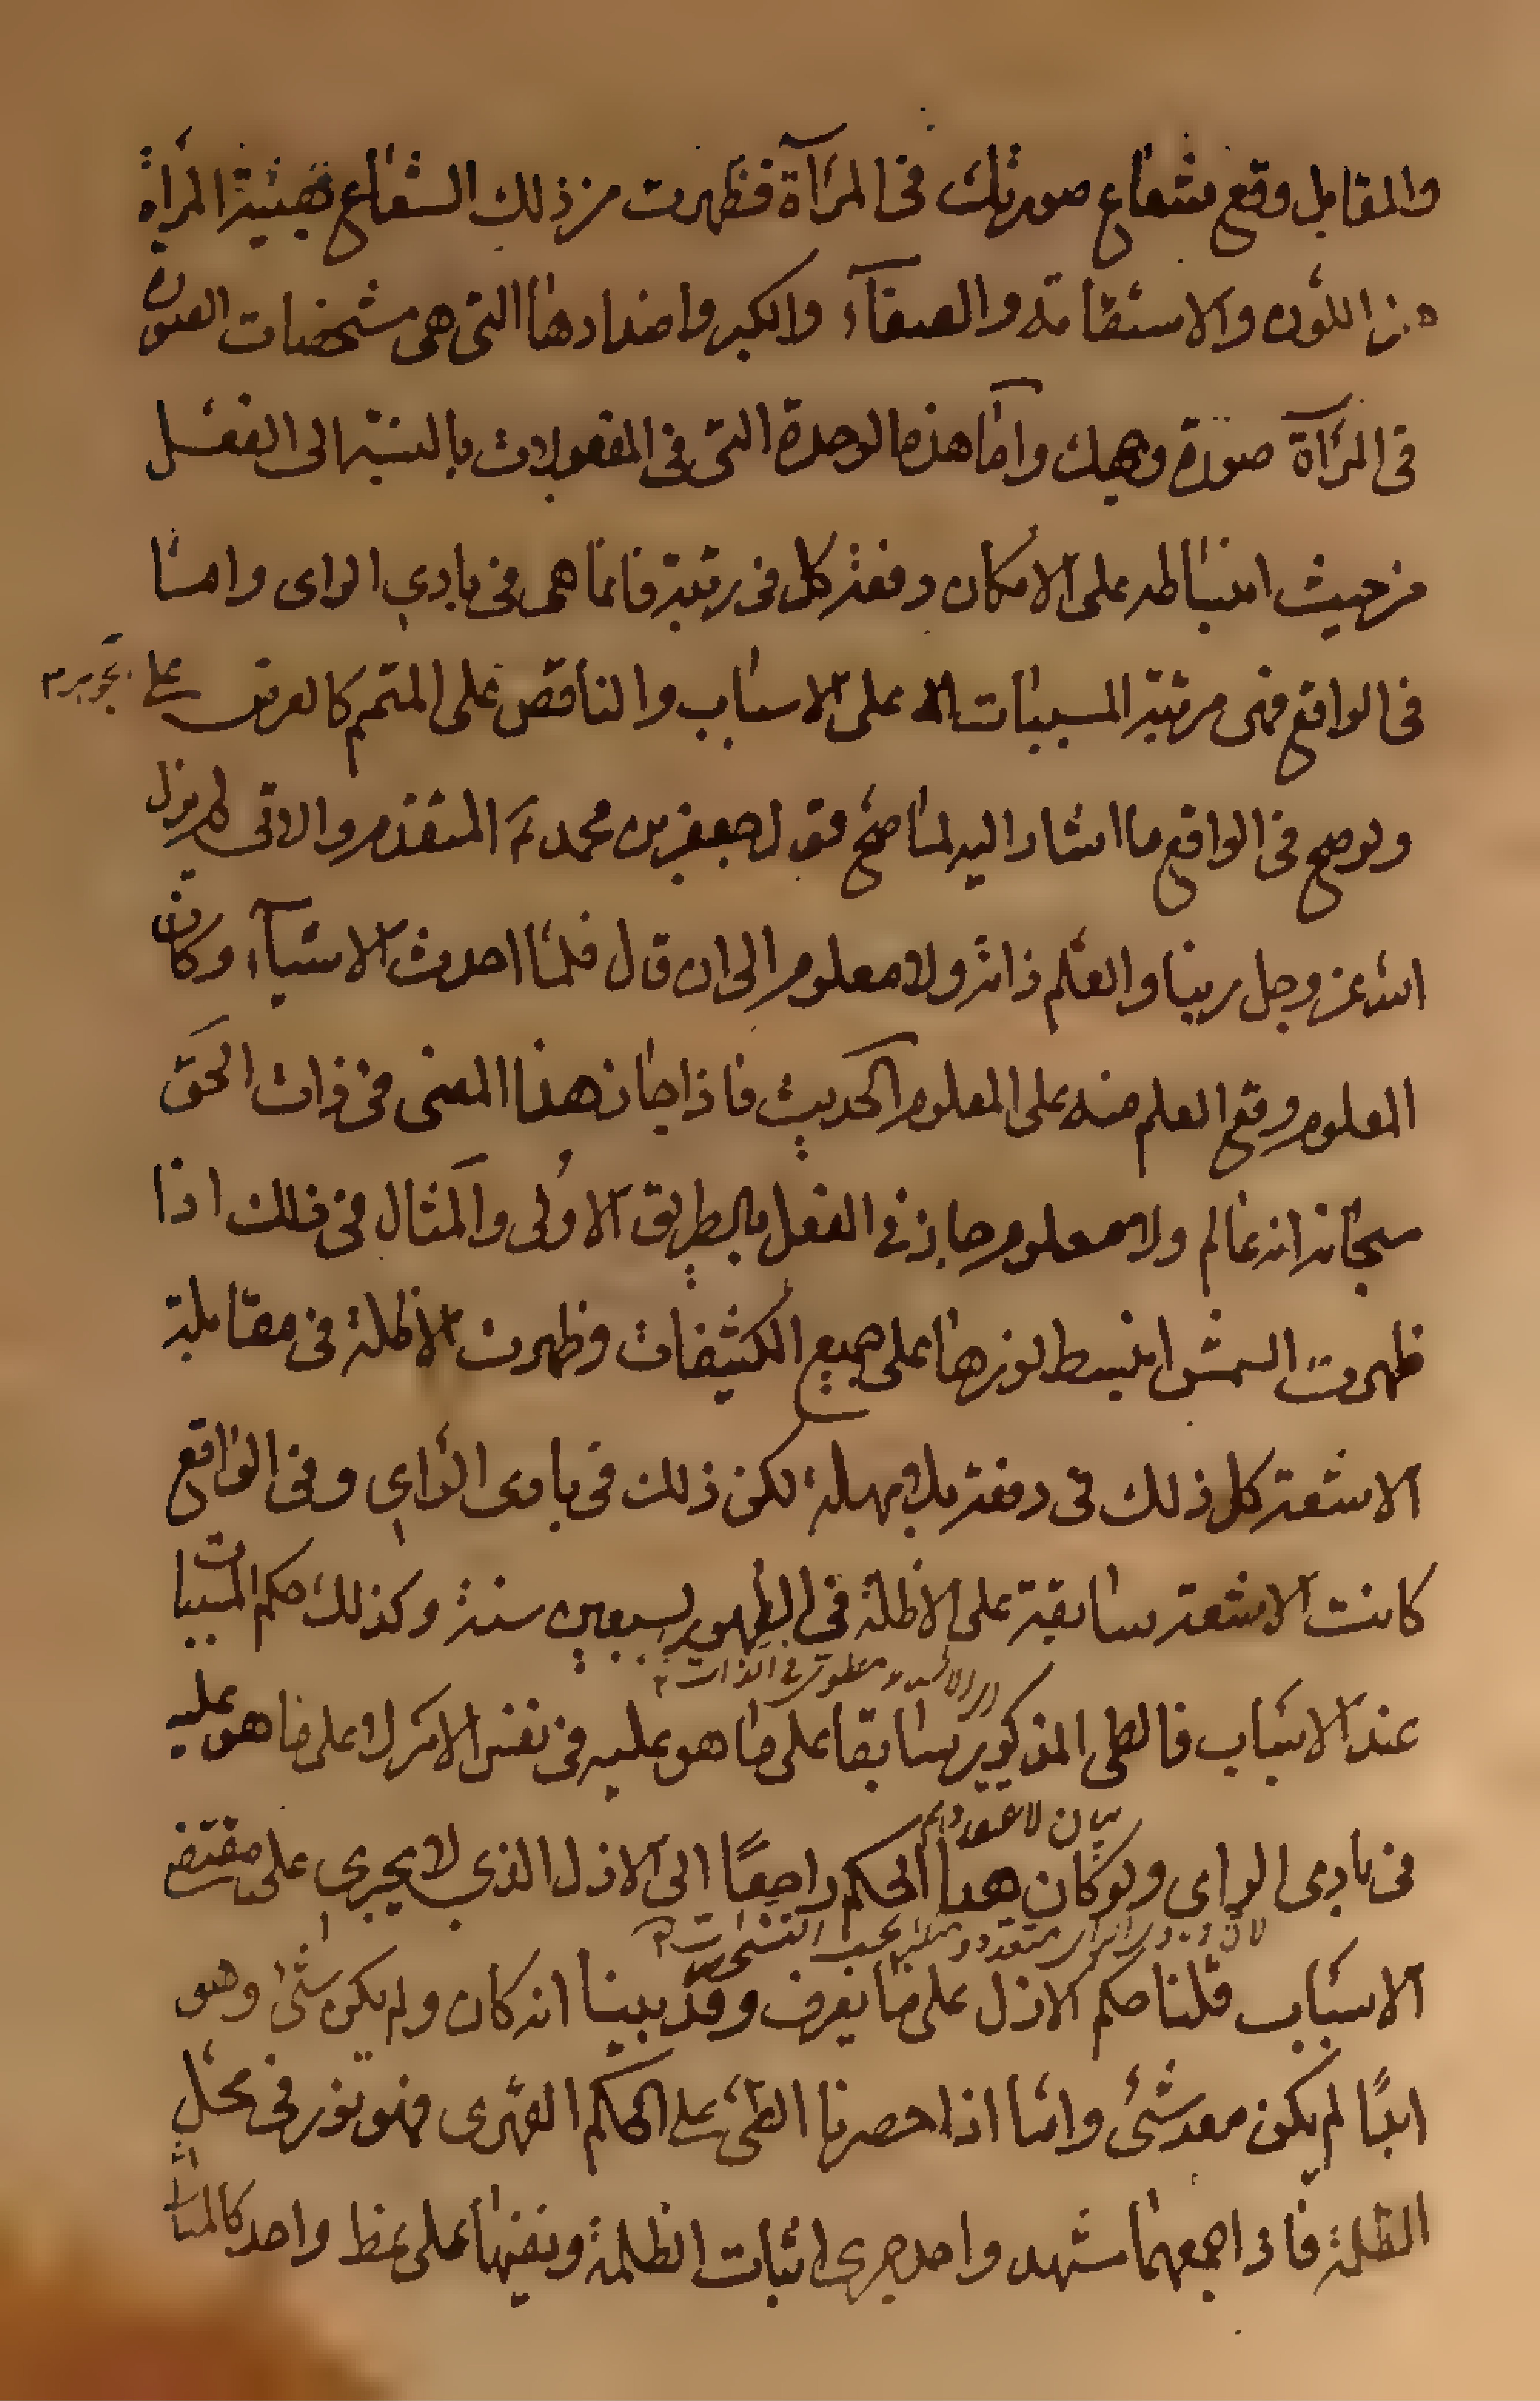 والمقابل وقع شعاع صورتك فى المرآة فظهرت من ذلك الشعاع بهيئة المرأة
من اللون والاستقامة والصفآء والكبر واضدادها التى هى مشخصات الصورة
فى المرآة صورة وجهك واما هذه الوحدة التى فى المفعولات بالنسبة الى الفعل
من حيث انبساطه على الامكان دفعة كل فى رتبته فانما هى فى بادي الراى وامّا
فى الواقع فهى مرتبة المسببات على الاسباب والناقص على المتمم كالعرض على
ولو صح فى الواقع ما اشار اليه لما صح قول جعفر بن محمد المتقدم والاتى لم يزل
الله عز وجل ربنا والعلم ذاته ولا معلوم الى ان قال فلما احدث الاشيآء وكان
المعلوم وقع العلم منه على المعلوم الحديث فاذا جاز هذا المعنى فى ذات الحق
سبحانه انه عالم ولا معلوم جاز فى الفعل بالطريق الاولى والمثال فى ذلك اذا
ظهرت الشمس انبسط نورها على جميع الكثيفات وظهرت الاظلة فى مقابلة
الاشعة كل ذلك فى دفعة بلا مهلة لكن ذلك فى بادى الراي وفى الواقع
كانت الاشعة سابقة على الاظلة فى الظهور بسبعين سنة وكذلك حكم المسببات
عند الاسباب فالطى المذكور سابقا على ما هو عليه فى نفس الامر لا على ما هو عليه
فى بادى الراى ولو كان هذا الحكم راجعًا الى الازل الذي لا يجرى على مقتضى
الاسباب قلنا حكم الازل على ما يعرف وقد بينا انه كان ولم يكن شئ وهو
ابدًا لم يكن معه شئ وامّا اذا حصرنا الطى على الحكم القهرى فهو نور فى محل
الظلمة فاذا جمعهما مشهد واحد جرى اثبات الظلمة ونفيها على نمط واحد